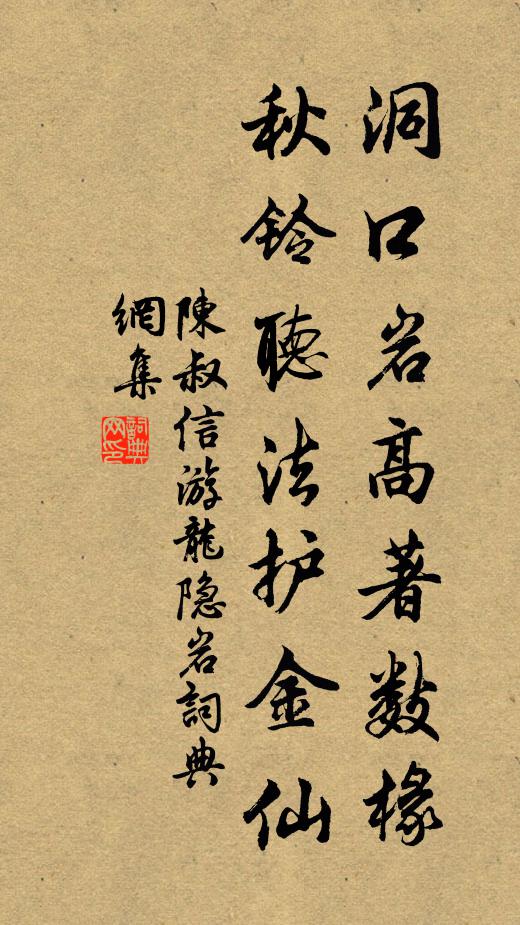 洞口岩高著数椽
秋铃聽法护金仙
陳叔信游龍隐岩詞典
網集
詞典
网印